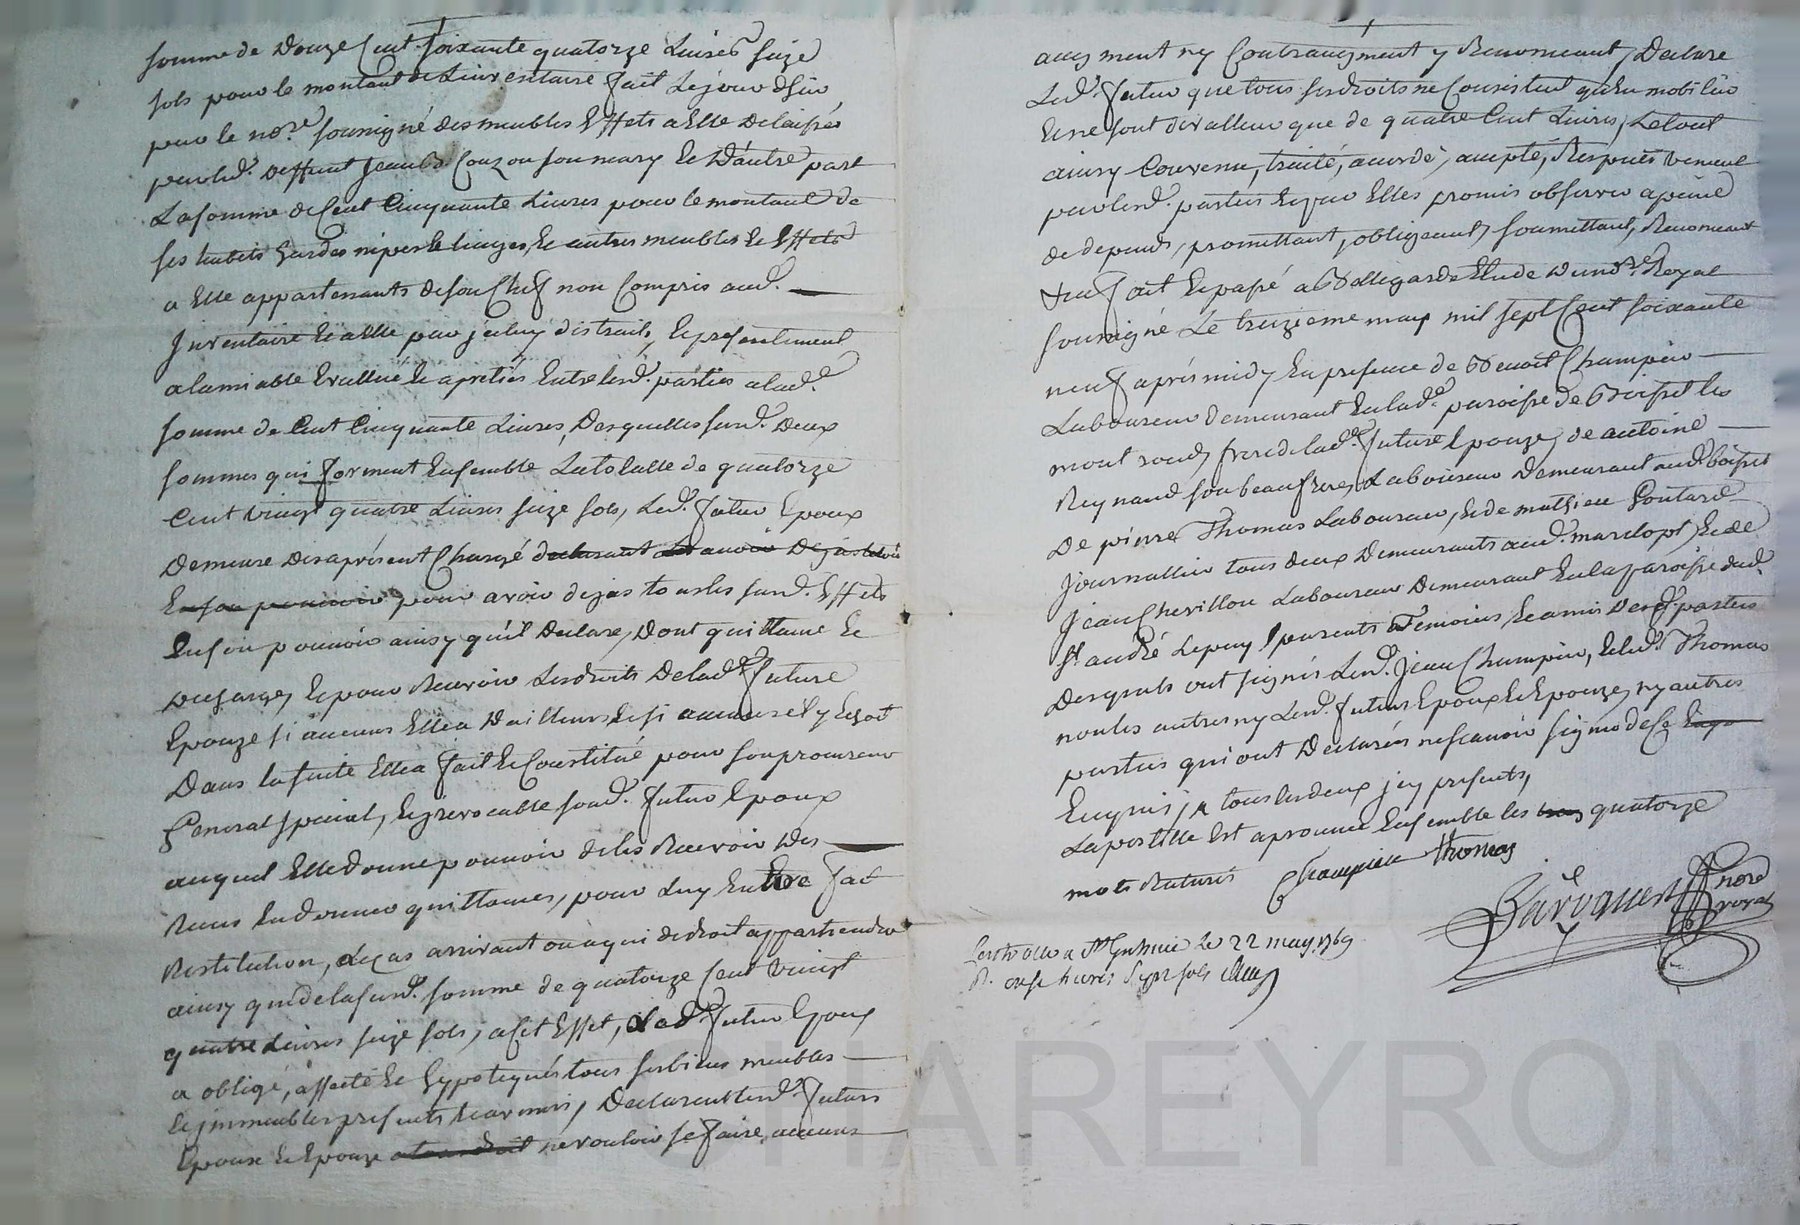 somme de Douze Cent soixante quatorze Livres seize
sols pour le montant de Linventaire fait Le jour dhier
par le nore. soussigné des meubles Effets a Elle Delaissés
par led. deffunt Jean Couzon son mary Et D'autre part
La somme de Cent Cinquante Livres pour le montant de
ses habits hardes nipes Linges, Et autres meubles Et Effets
a Elle appartenants de son Chef non Compris aud.
Inventaire Et a Elle par jceluy distraits, Et presentement
alamiable Evallué Et apretiés Entre lesd. parties a lad.
somme de Cent Cinquante Livres, Desquelles susd. Deux
sommes qui forment Ensemble La totalle de quatorze
Cent vingt quatre Livres seize sols, Led. futur Epoux
Demeure dès aprésent Chargé declarant Les avoir Dejas
En son pouvoir pour avoir dejas tous les susd. Effets
En son pouvoir ainsy qu'il Declare, Dont quittance Et
decharge, Et pour Recevoir Les droits De lad. future
Epouze si aucuns Elle a D'ailleurs, Et si aucuns il y Echoit
Dans la suite Elle a fait Et Constitué pour son procureur
General special, Et jrrevocable sond. futur Epoux
auquel Elle donne pouvoir de les Recevoir Des
Reçus En donner quittances, pour Luy En Etre fait
Restitution, Le cas arrivant ou a qui de droit appartiendra
ainsy que de la susd. somme de quatorze Cent vingt
quatre Livres seize sols, a Cet Effet, Led. futur Epoux
a obligé, affecté Et hypotequés tous ses biens meubles
Et jmmeubles presents Et avenir, Declarent lesd. futurs
Epoux Et Epouze ne vouloir se faire aucuns
augment ny Contraugment y Renonceant, Declare
Led. futur que tous ses droits ne Consistent qu'En mobilier
Et ne sont de valleur que de quatre Cent Livres, Le tout
ainsy Convenu, traité, acordé, accepté, Respectivement
par lesd. parties Et par Elles promis observer a peine
de depens, promettant, obligeant, soumettant, Renonceant
fait Et passé a Bellegarde Etude Dud. nre. Royal
soussigné Le treizieme may mil sept Cent soixante
neuf après midy En presence de Benoit Champier
Laboureur demeurant En lad. paroisse de Boisset les
mont rond, frere de lad. future Epouze, de antoine
Reynaud son beau frere, Laboureur Demeurant aud. boisset
De pierre Thomas Laboureur, Et de mathieu
Journallier tous deux Demeurants aud. marclopt, Et de
Jean Chevillon Laboureur Demeurant En la paroisse dud.
St. andré Le puy, parents Temoins, Et amis Desd. parties
Desquels ont signés Lesd. Jean Champier, Et led. Thomas
non les autres ny Lesd. futurs Epoux Et Epouze, ny autres
parties qui ont Declarés ne scavoir signer de Ce
Enquis, tous les deux jcy presents,
La postille Est aprouvée Ensemble les quatorze
mots Raturés Champier Thomas
nore
royal
Controllé a St Galmier Le 22 may 1769